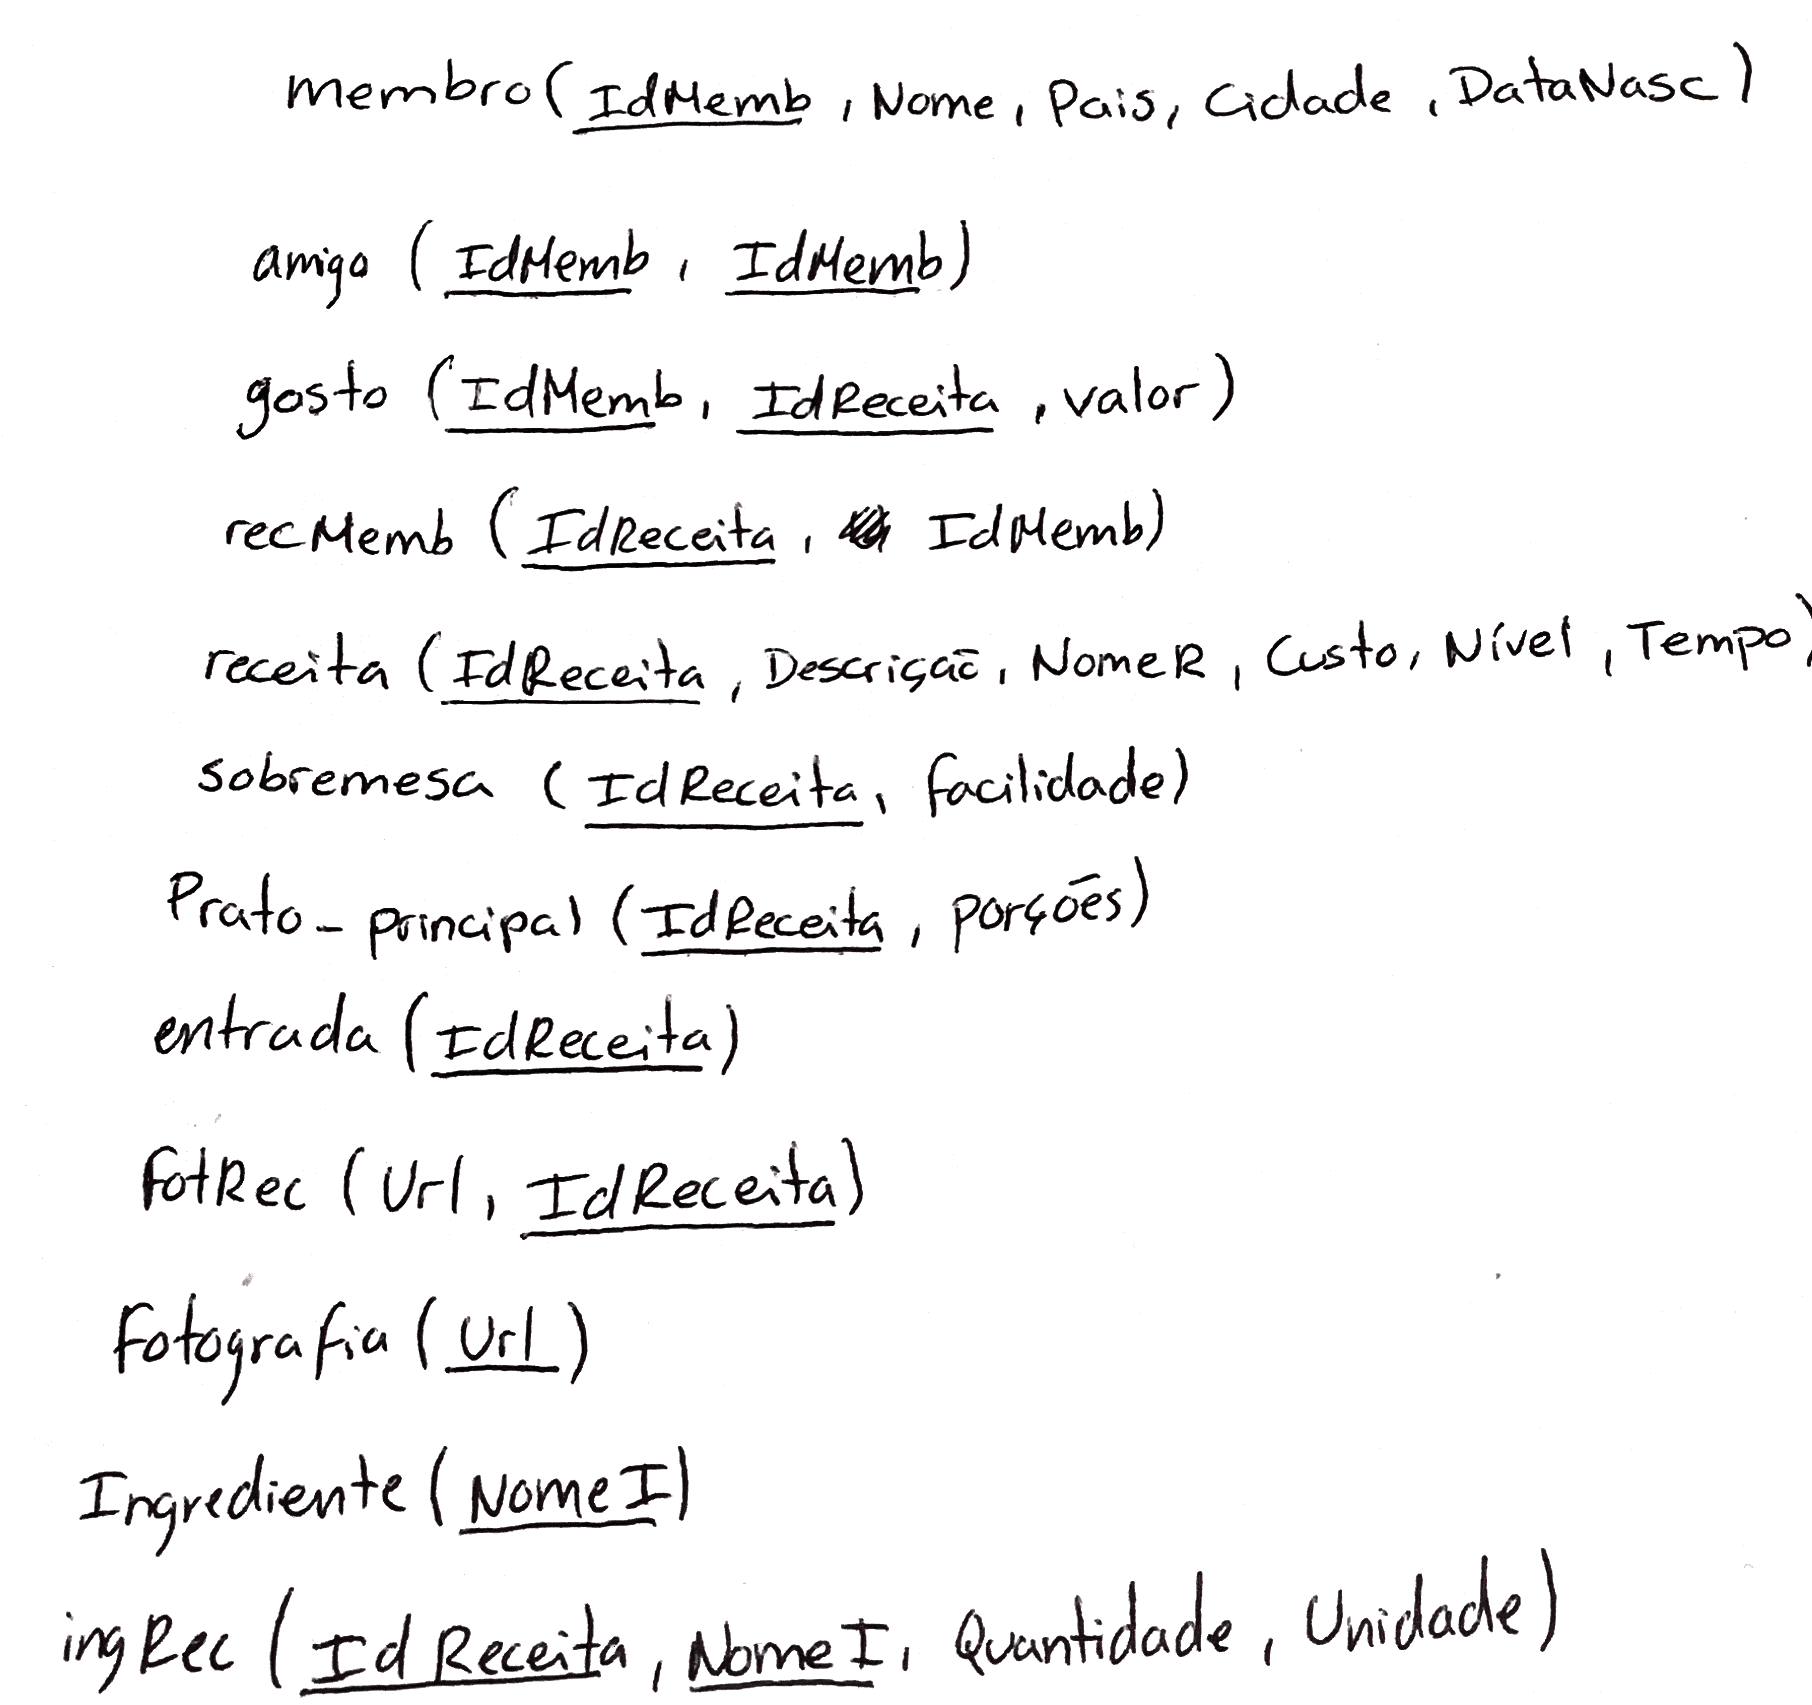 membro(IdMemb, Nome, Pais, Cidade, DataNasc)
amigo (IdMemb, IdMemb)
gosto (IdMemb, IdReceita, valor)
recMemb (IdReceita, IdMemb)
receita (IdReceita, Descrição, NomeR, Custo, Nível, Tempo)
sobremesa (IdReceita, facilidade)
Prato-principal (IdReceita, porções)
entrada (IdReceita)
fotRec (Url, IdReceita)
fotografia (Url)
Ingrediente (NomeI)
ingRec (IdReceita, NomeI, Quantidade, Unidade)